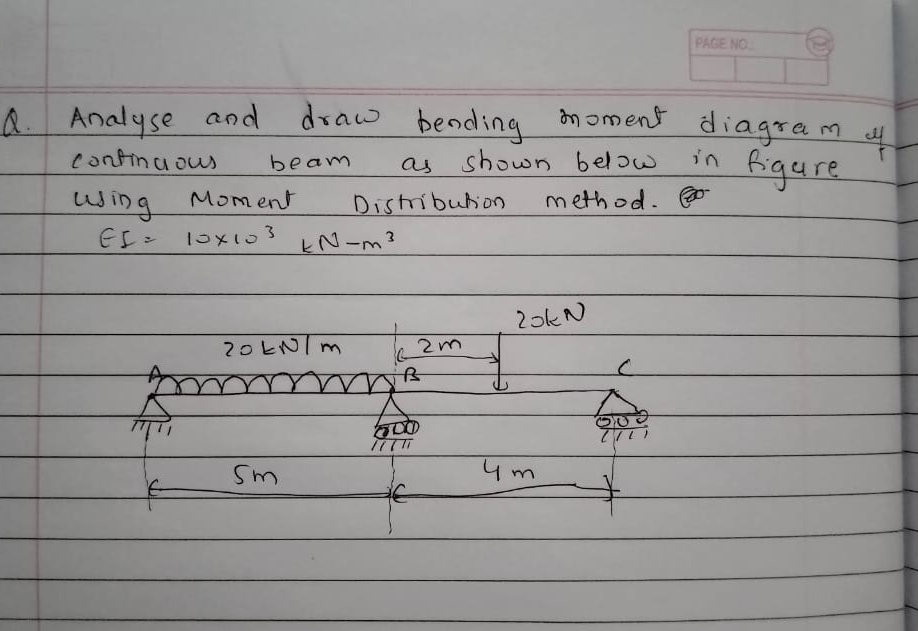 PAGE NO.
Q. Analyse and draw bending moment diagram of
continuous beam as shown below in figure
using Moment Distribution method.
EI = 10x10³ kN-m³
20kN
20 kN/m 2m
A B C
5m 4m